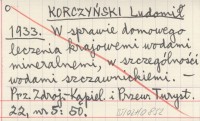 KORCZYŃSKI Ludomił
1933. W sprawie domowego
leczenia krajowemi wodami
mineralnemi, w szczególności
wodami szczawnickiemi. —
Prz. Zdroj.-Kąpiel. i Przew. Turyst.
22, nr 5: 50.